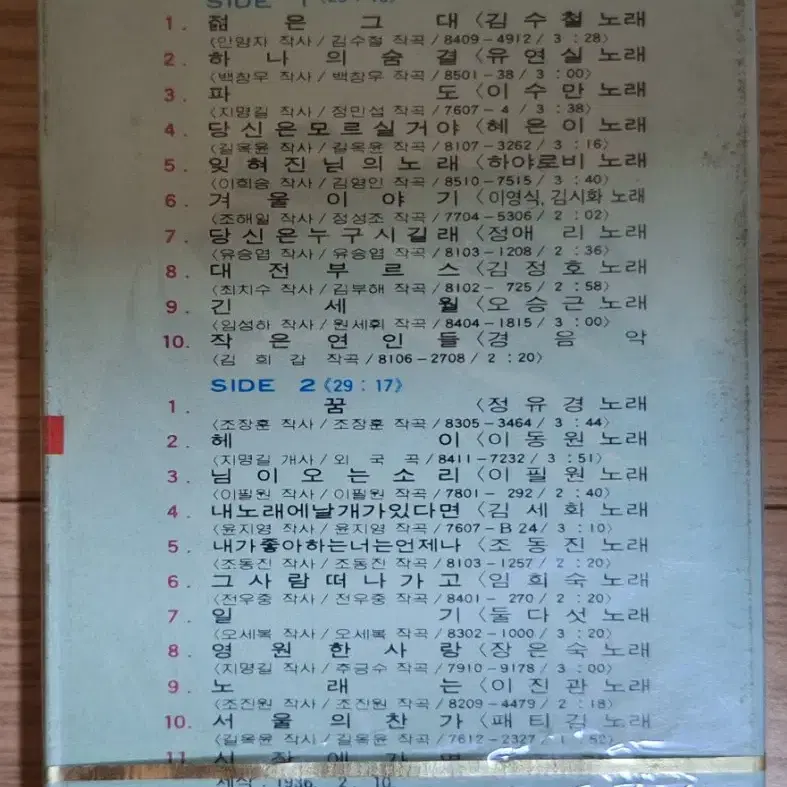 SIDE 1
1. 젊은 그대 〈김수철 노래
〈안양자 작사/김수철 작곡/8409-4912/3:28〉
2. 하나의 숨결 〈유연실 노래
〈백창우 작사/백창우 작곡/8501-38/3:00〉
3. 파도 〈이수만 노래
〈지명길 작사/정민섭 작곡/7607-4/3:38〉
4. 당신은모르실거야 〈혜은이 노래
〈길옥윤 작사/길옥윤 작곡/8107-3262/3:16〉
5. 잊혀진님의노래 〈하야로비 노래
〈이희승 작사/김영인 작곡/8510-7515/3:40〉
6. 겨울이야기 〈이영식, 김시화 노래
〈조해일 작사/정성조 작곡/7704-5306/2:02〉
7. 당신은누구시길래 〈정애리 노래
〈유승엽 작사/유승엽 작곡/8103-1208/2:36〉
8. 대전부르스 〈김정호 노래
〈최치수 작사/김부해 작곡/8102-725/2:58〉
9. 긴세월 〈오승근 노래
〈임성하 작사/원세휘 작곡/8404-1815/3:00〉
10. 작은연인들 〈경음악
〈김희갑 작곡/8106-2708/2:20〉
SIDE 2 《29:17》
1. 꿈 〈정유경 노래
〈조장훈 작사/조장훈 작곡/8305-3464/3:44〉
2. 헤이 〈이동원 노래
〈지명길 개사/외국곡/8411-7232/3:51〉
3. 님이오는소리 〈이필원 노래
〈이필원 작사/이필원 작곡/7801-292/2:40〉
4. 내노래에날개가있다면 〈김세화 노래
〈윤지영 작사/윤지영 작곡/7607-B24/3:10〉
5. 내가좋아하는너는언제나 〈조동진 노래
〈조동진 작사/조동진 작곡/8103-1257/2:20〉
6. 그사람떠나가고 〈임희숙 노래
〈전우중 작사/전우중 작곡/8401-270/2:20〉
7. 일기 〈둘다섯 노래
〈오세복 작사/오세복 작곡/8302-1000/3:20〉
8. 영원한사랑 〈장은숙 노래
〈지명길 작사/추긍수 작곡/7910-9178/3:00〉
9. 노래는 〈이진관 노래
〈조진원 작사/조진원 작곡/8209-4479/2:18〉
10. 서울의찬가 〈패티김 노래
〈길옥윤 작사/길옥윤 작곡/7612-2327/1:52〉
11.
제작. 1986. 2. 10